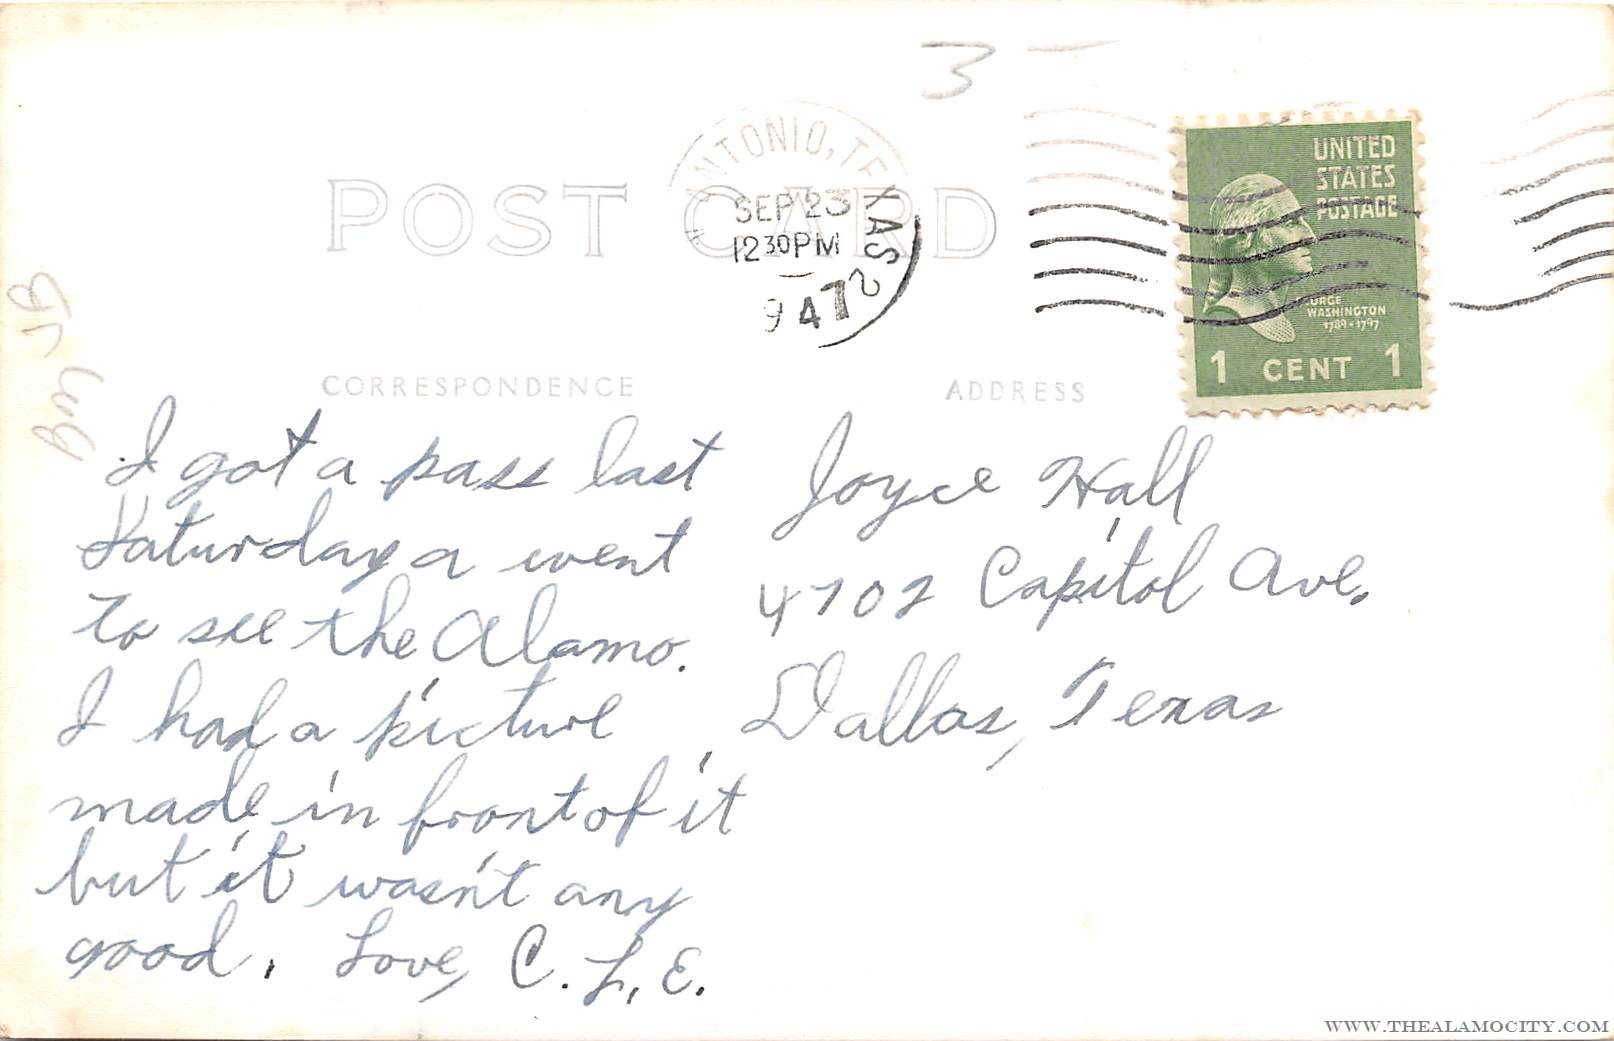 3 —
ANTONIO, TEXAS 2
SEP 23
12 30 PM
947
UNITED
STATES
POSTAGE
ORGE
WASHINGTON
1789-1797
1 CENT 1
POST CARD
CORRESPONDENCE
I got a pass last
Saturday a went
to see the Alamo.
I had a picture
made in front of it
but it wasn't any
good. Love, C. L. E.
ADDRESS
Joyce Hall
4702 Capitol Ave.
Dallas, Texas
WWW.THEALAMOCITY.COM